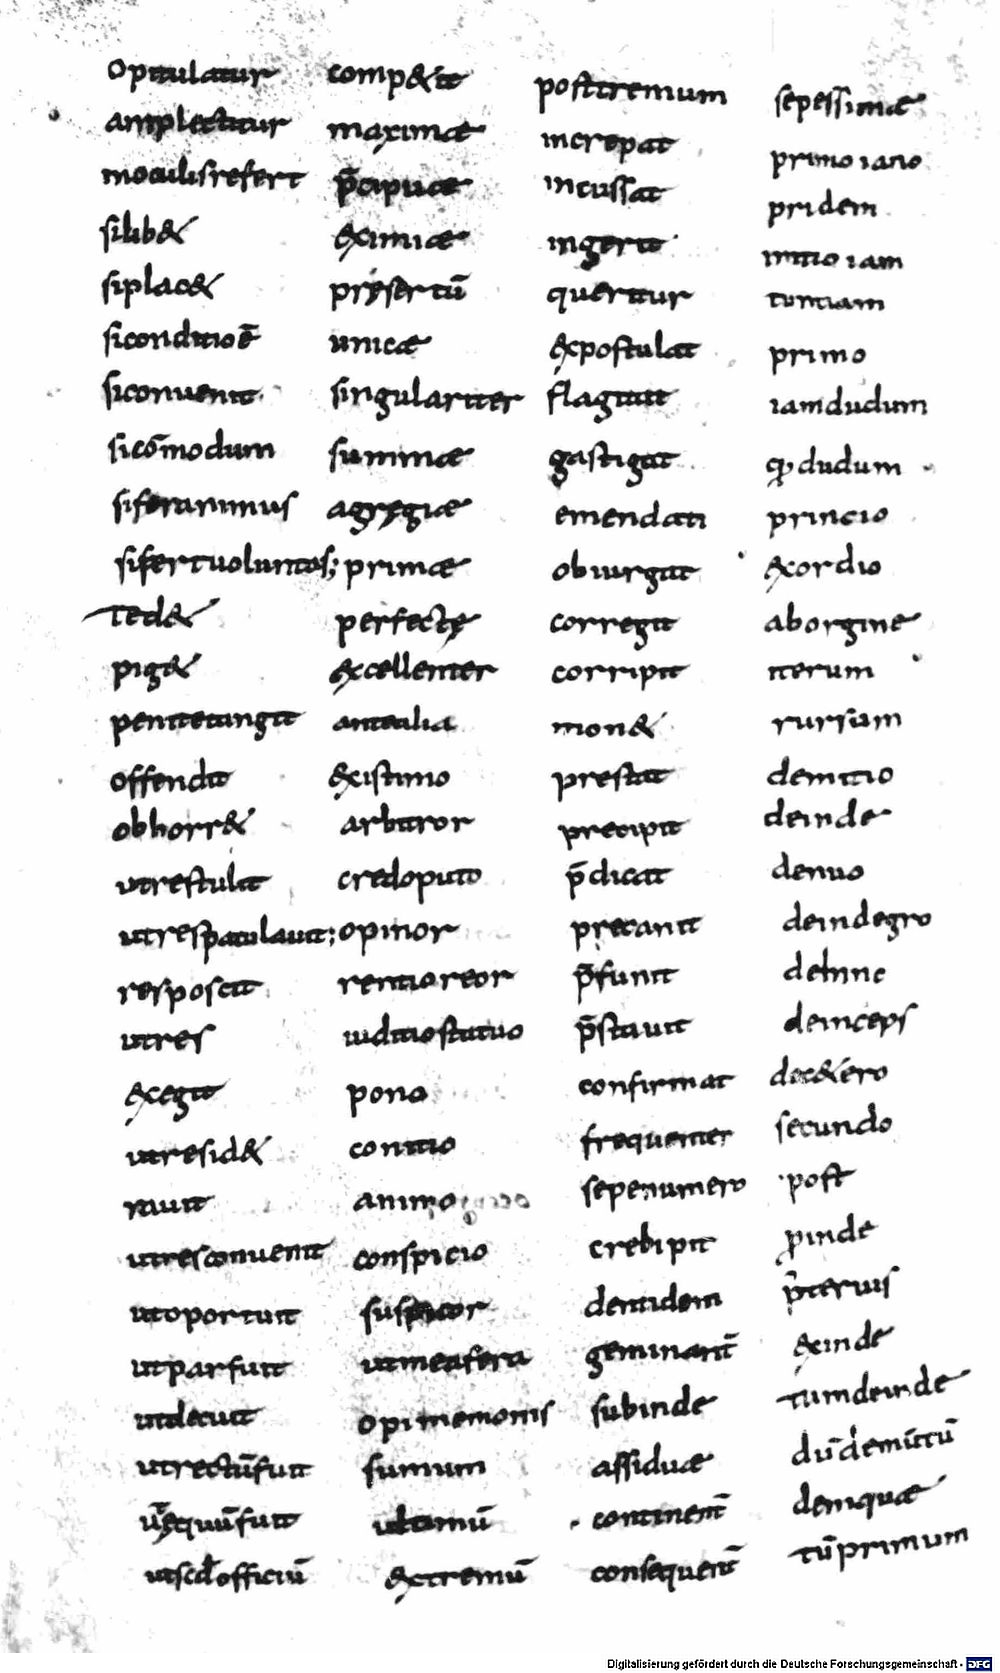 opitulatur
amplectitur
inoculisrefert
silib&
siplac&
siconditioē
siconuenit
sicōmodum
siferanimus
sifertuoluntas;
Ted&
pig&
penitetangit
offendit
obhorr&
utrestulit
utrespatulauit;
resposcit
utres
exegit
utresid&
utresconuenit
utoportuit
utparfuit
utdecuit
utrectūfuit
utęquūfuit
officiū
comp&it
maximæ
p̄cipuæ
eximiæ
presertī
unicæ
singulariter
summæ
agregiæ
primæ
perfectę
excellenter
antealia
existimo
arbitror
credoputo
opinor
rentioreor
iuditiostatuo
pono
conitio
animo
conspicio
suspicor
utmeafera
opinemonis
sumum
ultimū
extremū
postremum
increpat
incussat
ingerit
queritur
expostulat
flagitat
gastigat
emendati
obiurgat
corregit
corripit
mon&
prestat
precipit
p̄dicat
precanit
p̄funit
p̄stauit
confirmat
frequenter
sepenumero
crebipit
dentidem
geminanт̄
subinde
assiduæ
continenт̄
consequenт̄
sepessimæ
primoiano
pridem
initioiam
tuntiam
primo
iamdudum
ꝙdudum
princio
exordio
aborgine
iterum
rursum
deinitio
deinde
denuo
deindegro
dehinc
deinceps
dec&ero
secundo
post
ꝓinde
p̄teruis
exinde
tumdeinde
dūdemūtū
deniquæ
tūprimum
Digitalisierung gefördert durch die Deutsche Forschungsgemeinschaft - DFG